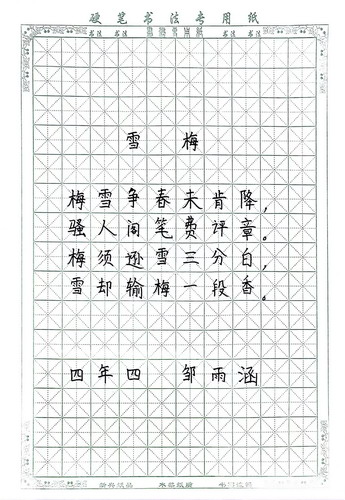 硬笔书法专用纸
书法 书法 书法 书法
雪 梅
梅雪争春未肯降，
骚人阁笔费评章。
梅须逊雪三分白，
雪却输梅一段香。
四年四 邹雨涵